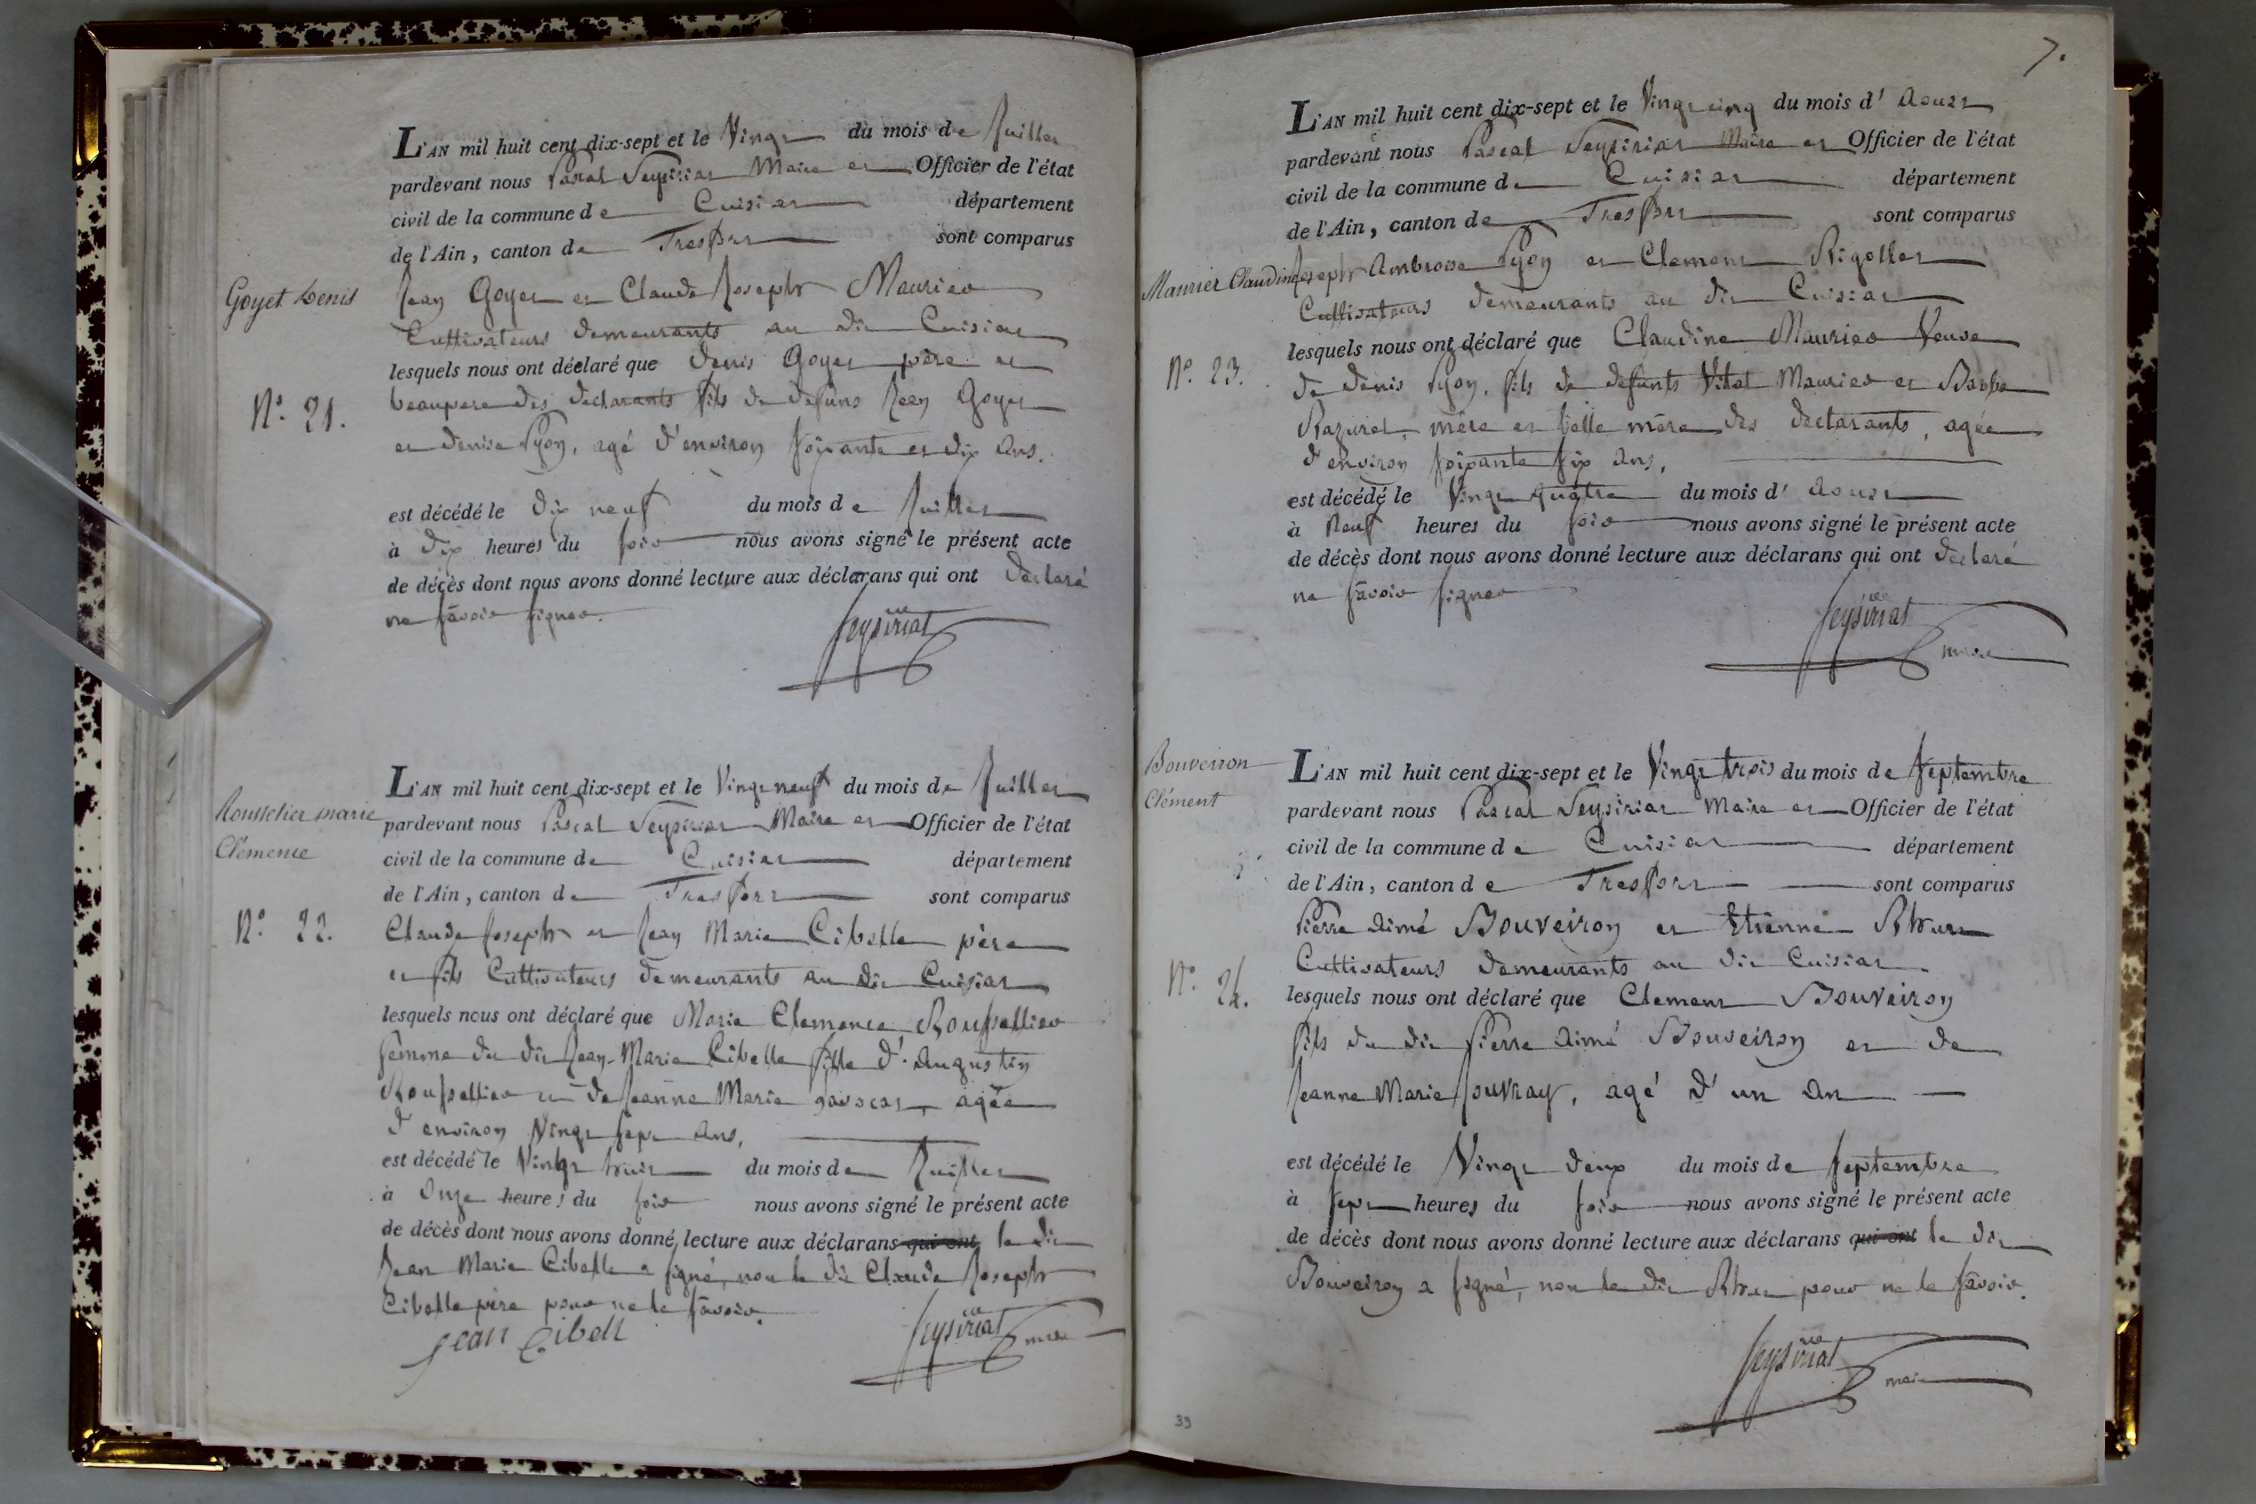 L'AN mil huit cent dix-sept et le Vingt du mois de Juillet
pardevant nous Pascal Seyssiriat Maire et Officier de l'état
civil de la commune de Cuisiat département
de l'Ain, canton de Treffort sont comparus
Goyet Denis
Jean Goyet et Claude Joseph Maurier
Cultivateurs demeurants au dit Cuisiat
lesquels nous ont déclaré que denis Goyet père et
N.° 21.
beaupere des declarants fils de defuns Jean Goyet
et denise Pyon, agé d'environ soixante et dix ans.
est décédé le dix neuf du mois de Juillet
à dix heures du soir nous avons signé le présent acte
de décès dont nous avons donné lecture aux déclarans qui ont declaré
ne savoir signer.
Seyssiriat
L'AN mil huit cent dix-sept et le Vingt neuf du mois de Juillet
Rousselier marie
Clémence
pardevant nous Pascal Seyssiriat Maire et Officier de l'état
civil de la commune de Cuisiat département
de l'Ain, canton de Treffort sont comparus
N.° 22.
Claude Joseph et Jean Marie Cibelle père
et fils Cultivateurs demeurants au dit Cuisiat
lesquels nous ont déclaré que Marie Clemence Roussellier
femme du dit Jean-Marie Cibelle fille d'Augustin
Roussellier et de Jeanne Marie agée
d'environ Vingt sept ans,
est décédé le Vingt huit du mois de Juillet
à Onze heures du soir nous avons signé le présent acte
de décès dont nous avons donné lecture aux déclarans qui ont le dit
Jean Marie Cibelle a signé, non le dit Claude Joseph
Cibelle père pour ne le savoir.
Jean Cibell
Seyssiriat maire
7.
L'AN mil huit cent dix-sept et le Vingt cinq du mois d'Aoust
pardevant nous Pascal Seyssiriat Maire et Officier de l'état
civil de la commune de Cuisiat département
de l'Ain, canton de Treffort sont comparus
Maurier Claudine
Joseph Ambroise Pyon et Clement Rigollet
Cultivateurs demeurants au dit Cuisiat
lesquels nous ont déclaré que Claudine Maurier Veuve
N.° 23.
de denis Pyon, fils de defunts Vital Maurier et Barbe
Razurel, mère et belle mère des declarants, agée
d'environ soixante six ans,
est décédé le Vingt quatre du mois d'Aoust
à Neuf heures du soir nous avons signé le présent acte
de décès dont nous avons donné lecture aux déclarans qui ont declaré
ne savoir signer
Seyssiriat maire
Bouveiron
Clément
L'AN mil huit cent dix-sept et le Vingt trois du mois de Septembre
pardevant nous Pascal Seyssiriat Maire et Officier de l'état
civil de la commune de Cuisiat département
de l'Ain, canton de Treffort sont comparus
Pierre Aimé Bouveiron et Etienne
Cultivateurs demeurants au dit Cuisiat.
N.° 24.
lesquels nous ont déclaré que Clement Bouveiron
fils du dit Pierre Aimé Bouveiron et de
Jeanne Marie Jouvray, agé d'un An
est décédé le Vingt deux du mois de Septembre
à Sept heures du soir nous avons signé le présent acte
de décès dont nous avons donné lecture aux déclarans qui ont le dit
Bouveiron a signé, non le dit pour ne le savoir.
Seyssiriat maire
39